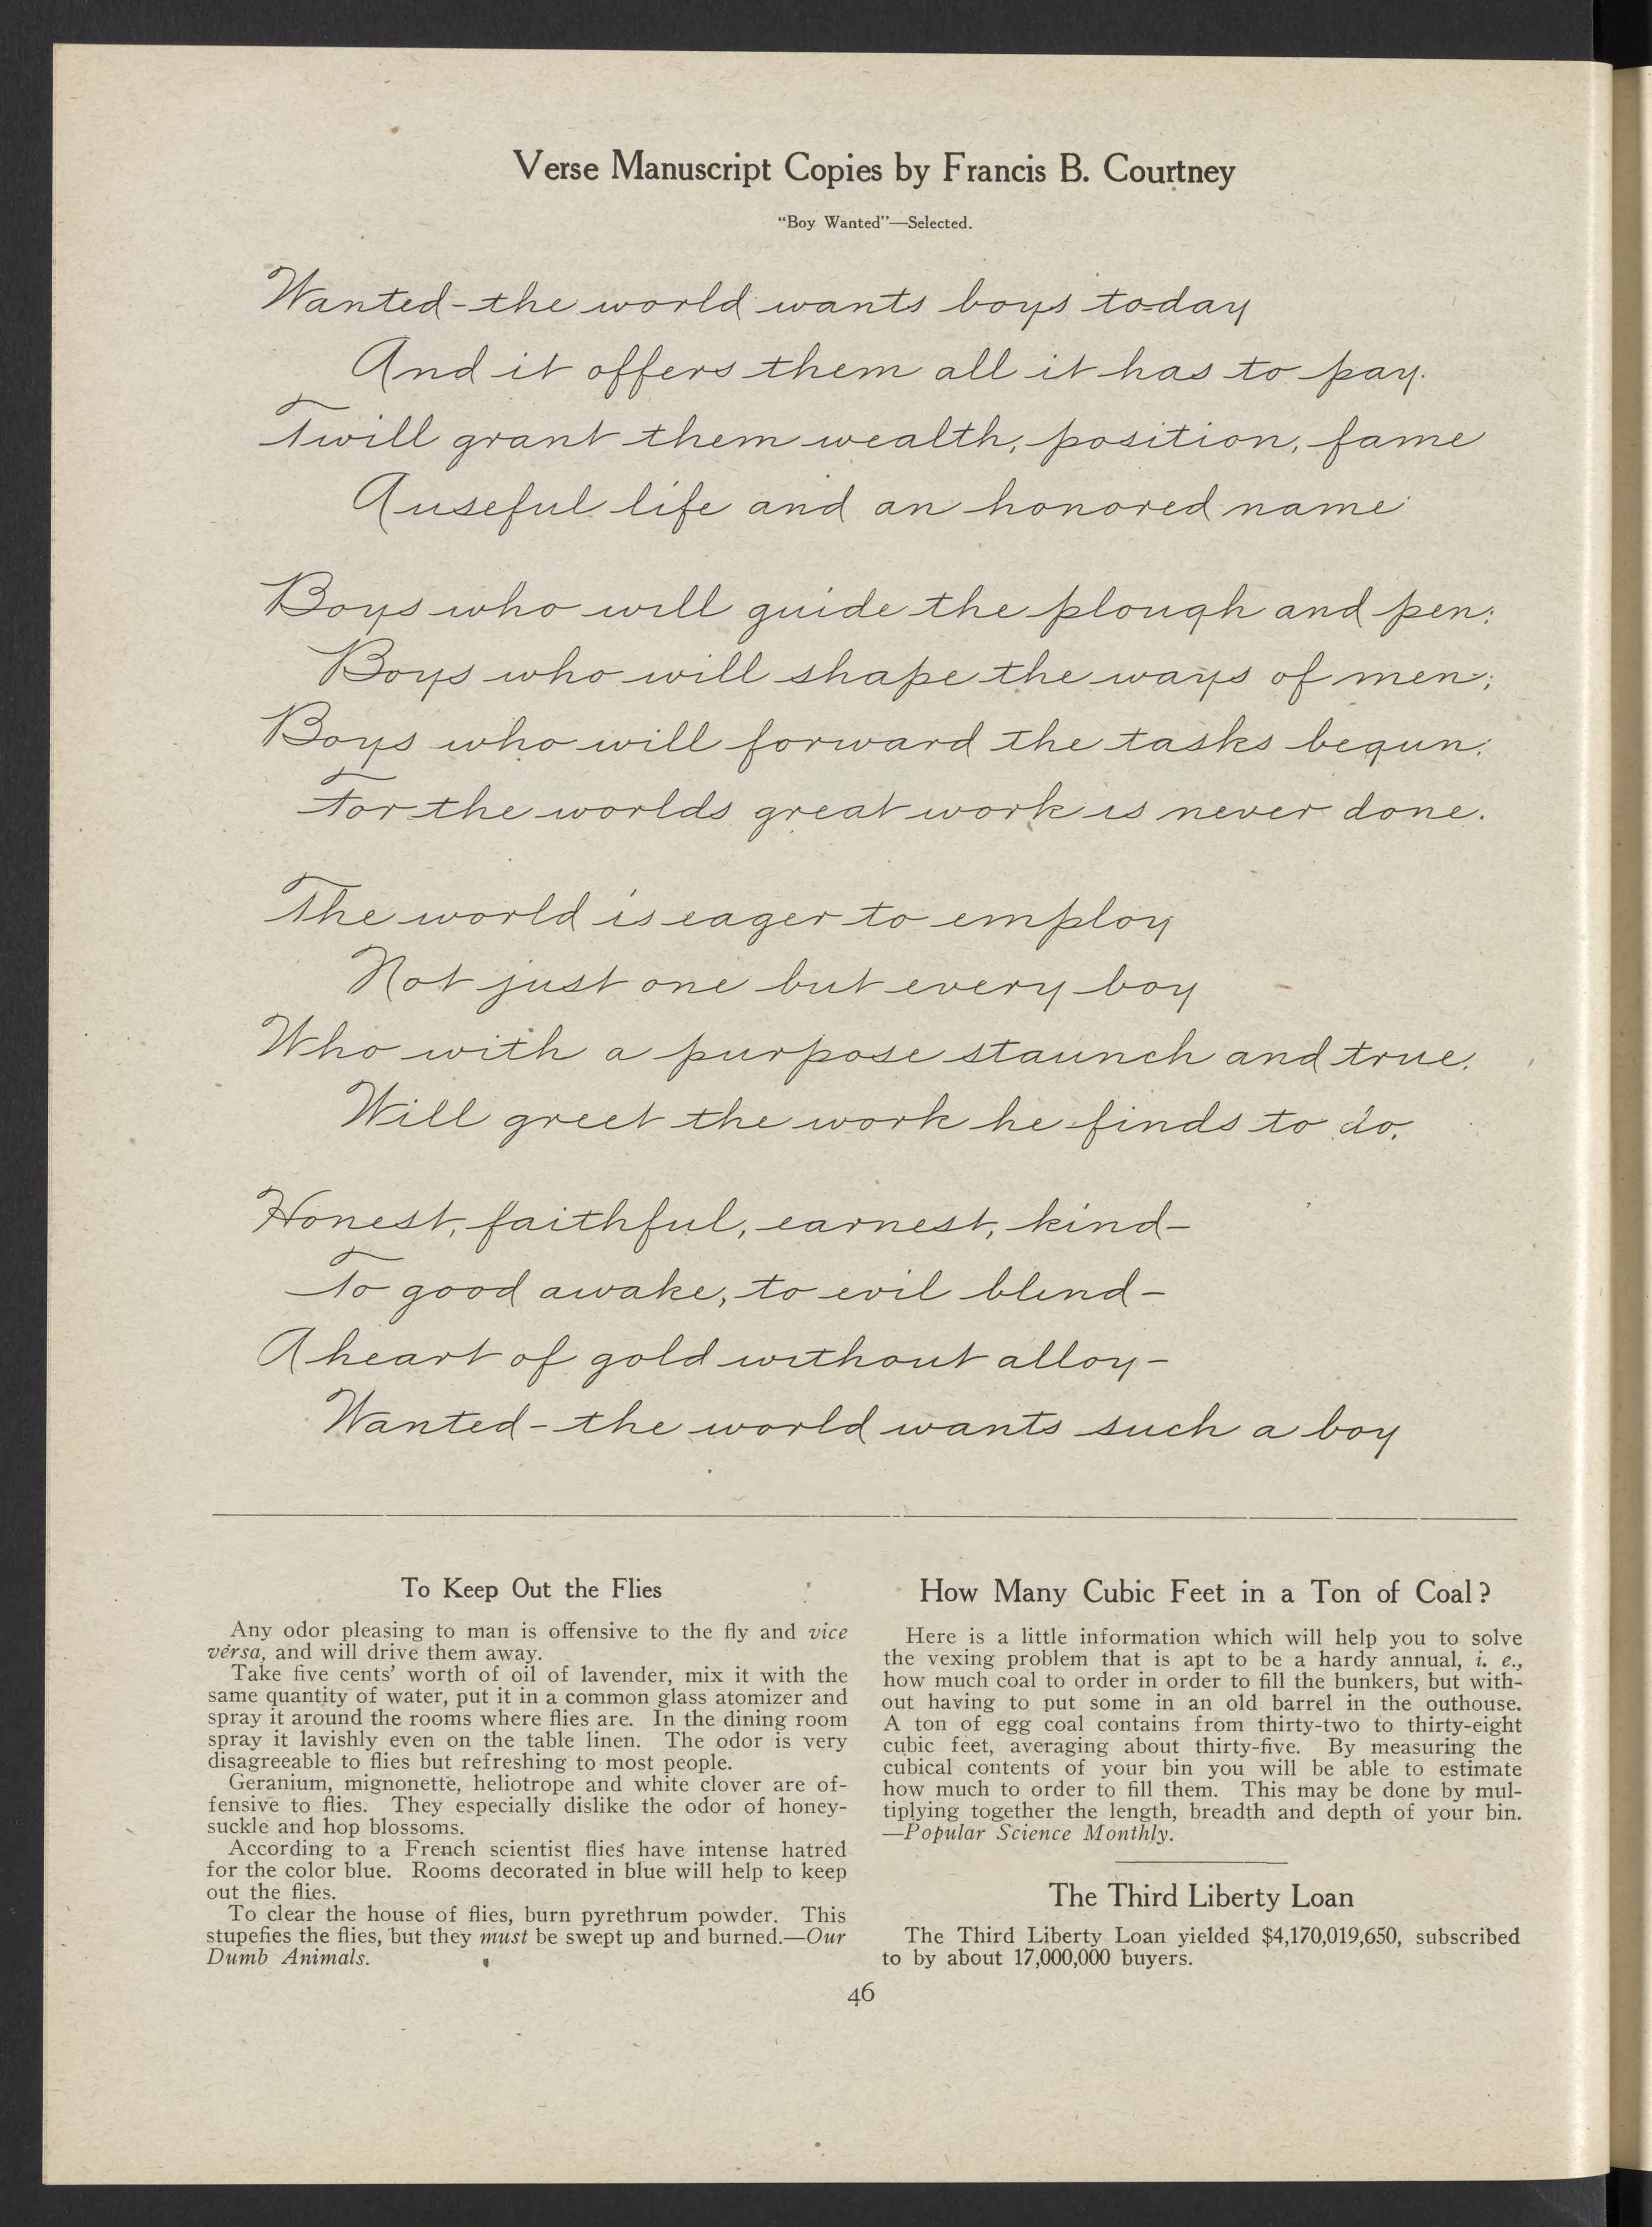 Verse Manuscript Copies by Francis B. Courtney
"Boy Wanted"—Selected.
Wanted-the world wants boys to-day
And it offers them all it has to pay.
Twill grant them wealth, position, fame
A useful life and an honored name
Boys who will guide the plough and pen;
Boys who will shape the ways of men;
Boys who will forward the tasks begun;
For the worlds great work is never done.
The world is eager to employ
Not just one but every boy
Who with a purpose staunch and true,
Will greet the work he finds to do.
Honest, faithful, earnest, kind-
To good awake, to evil blind-
A heart of gold without alloy-
Wanted-the world wants such a boy
To Keep Out the Flies
Any odor pleasing to man is offensive to the fly and vice
versa, and will drive them away.
Take five cents' worth of oil of lavender, mix it with the
same quantity of water, put it in a common glass atomizer and
spray it around the rooms where flies are. In the dining room
spray it lavishly even on the table linen. The odor is very
disagreeable to flies but refreshing to most people.
Geranium, mignonette, heliotrope and white clover are of-
fensive to flies. They especially dislike the odor of honey-
suckle and hop blossoms.
According to a French scientist flies have intense hatred
for the color blue. Rooms decorated in blue will help to keep
out the flies.
To clear the house of flies, burn pyrethrum powder. This
stupefies the flies, but they must be swept up and burned.—Our
Dumb Animals.
How Many Cubic Feet in a Ton of Coal?
Here is a little information which will help you to solve
the vexing problem that is apt to be a hardy annual, i. e.,
how much coal to order in order to fill the bunkers, but with-
out having to put some in an old barrel in the outhouse.
A ton of egg coal contains from thirty-two to thirty-eight
cubic feet, averaging about thirty-five. By measuring the
cubical contents of your bin you will be able to estimate
how much to order to fill them. This may be done by mul-
tiplying together the length, breadth and depth of your bin.
—Popular Science Monthly.
The Third Liberty Loan
The Third Liberty Loan yielded $4,170,019,650, subscribed
to by about 17,000,000 buyers.
46